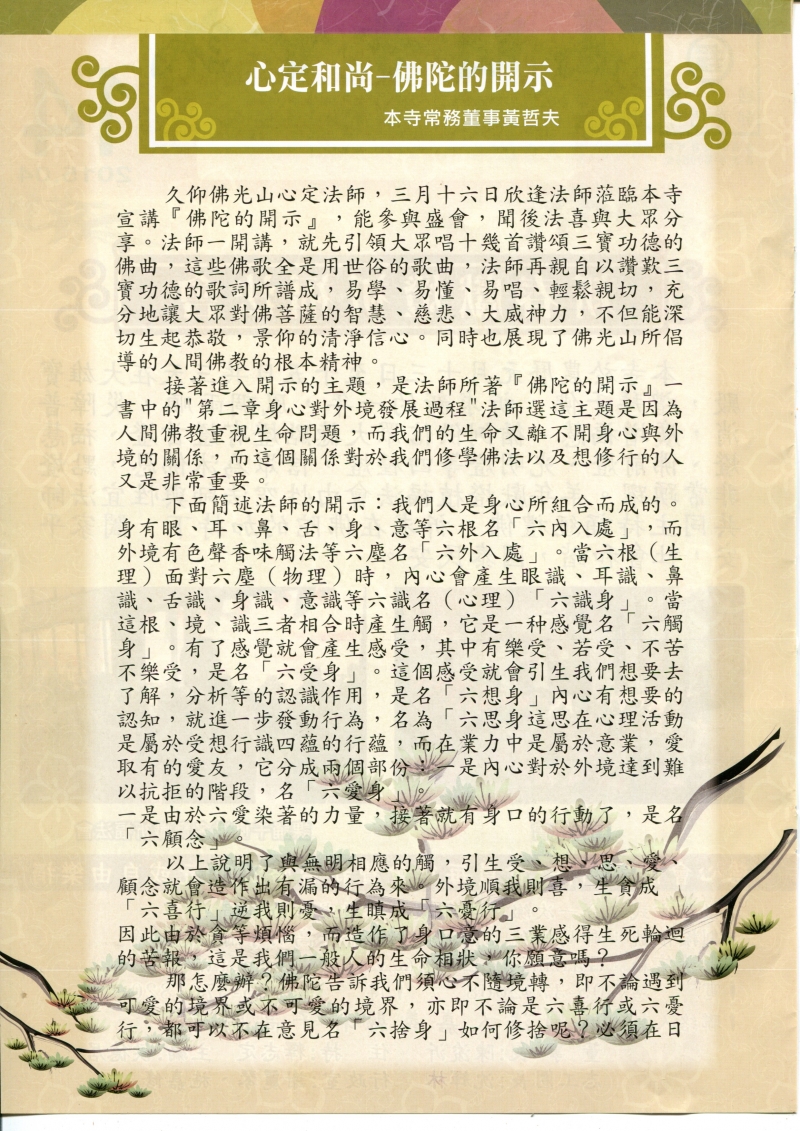 心定和尚-佛陀的開示
本寺常務董事黃哲夫
久仰佛光山心定法師，三月十六日欣逢法師蒞臨本寺
宣講『佛陀的開示』，能參與盛會，聞後法喜與大眾分
享。法師一開講，就先引領大眾唱十幾首讚頌三寶功德的
佛曲，這些佛歌全是用世俗的歌曲，法師再親自以讚歎三
寶功德的歌詞所譜成，易學、易懂、易唱、輕鬆親切，充
分地讓大眾對佛菩薩的智慧、慈悲、大威神力，不但能深
切生起恭敬，景仰的清淨信心。同時也展現了佛光山所倡
導的人間佛教的根本精神。
接著進入開示的主題，是法師所著『佛陀的開示』一
書中的"第二章身心對外境發展過程"法師選這主題是因為
人間佛教重視生命問題，而我們的生命又離不開身心與外
境的關係，而這個關係對於我們修學佛法以及想修行的人
又是非常重要。
下面簡述法師的開示：我們人是身心所組合而成的。
身有眼、耳、鼻、舌、身、意等六根名「六內入處」，而
外境有色聲香味觸法等六塵名「六外入處」。當六根（生
理）面對六塵（物理）時，內心會產生眼識、耳識、鼻
識、舌識、身識、意識等六識名（心理）「六識身」。當
這根、境、識三者相合時產生觸，它是一种感覺名「六觸
身」。有了感覺就會產生感受，其中有樂受、若受、不苦
不樂受，是名「六受身」。這個感受就會引生我們想要去
了解，分析等的認識作用，是名「六想身」內心有想要的
認知，就進一步發動行為，名為「六思身這思在心理活動
是屬於受想行識四蘊的行蘊，而在業力中是屬於意業，愛
取有的愛友，它分成兩個部份：一是內心對於外境達到難
以抗拒的階段，名「六愛身」。
一是由於六愛染著的力量，接著就有身口的行動了，是名
「六顧念」。
以上說明了與無明相應的觸，引生受、想、思、愛、
顧念就會造作出有漏的行為來。外境順我則喜，生貪成
「六喜行」逆我則憂，生瞋成「六憂行』。
因此由於貪等煩惱，而造作了身口意的三業感得生死輪迴
的苦報，這是我們一般人的生命相狀，你願意嗎？
那怎麼辦？佛陀告訴我們須心不隨境轉，即不論遇到
可愛的境界或不可愛的境界，亦即不論是六喜行或六憂
行，都可以不在意見名「六捨身」如何修捨呢？必須在日